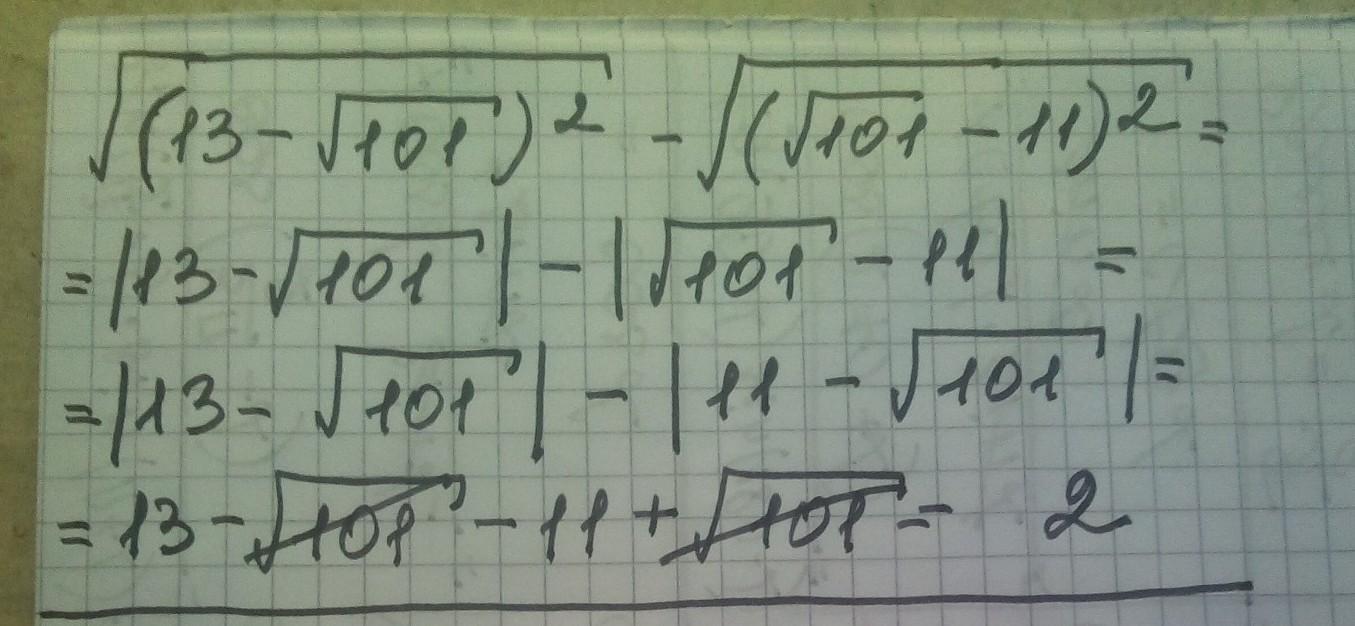 √(13-√101)² - √(√101 - 11)² =
= |13-√101| - |√101 - 11| =
= |13 - √101| - |11 - √101| =
= 13 - √101 - 11 + √101 = 2